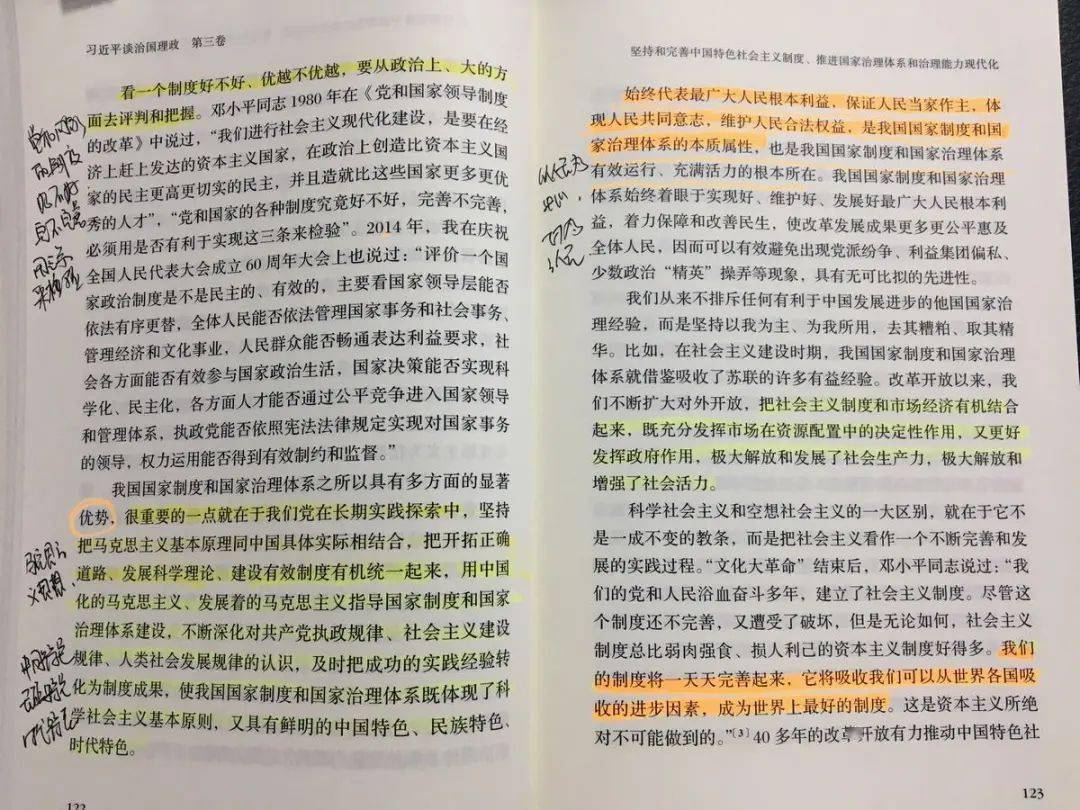 习近平谈治国理政 第三卷
看一个制度好不好、优越不优越，要从政治上、大的方
面去评判和把握。邓小平同志1980年在《党和国家领导制度
的改革》中说过，“我们进行社会主义现代化建设，是要在经
济上赶上发达的资本主义国家，在政治上创造比资本主义国
家的民主更高更切实的民主，并且造就比这些国家更多更优
秀的人才”，“党和国家的各种制度究竟好不好，完善不完善，
必须用是否有利于实现这三条来检验”。2014年，我在庆祝
全国人民代表大会成立60周年大会上也说过：“评价一个国
家政治制度是不是民主的、有效的，主要看国家领导层能否
依法有序更替，全体人民能否依法管理国家事务和社会事务、
管理经济和文化事业，人民群众能否畅通表达利益要求，社
会各方面能否有效参与国家政治生活，国家决策能否实现科
学化、民主化，各方面人才能否通过公平竞争进入国家领导
和管理体系，执政党能否依照宪法法律规定实现对国家事务
的领导，权力运用能否得到有效制约和监督。”
我国国家制度和国家治理体系之所以具有多方面的显著
优势，很重要的一点就在于我们党在长期实践探索中，坚持
把马克思主义基本原理同中国具体实际相结合，把开拓正确
道路、发展科学理论、建设有效制度有机统一起来，用中国
化的马克思主义、发展着的马克思主义指导国家制度和国家
治理体系建设，不断深化对共产党执政规律、社会主义建设
规律、人类社会发展规律的认识，及时把成功的实践经验转
化为制度成果，使我国国家制度和国家治理体系既体现了科
学社会主义基本原则，又具有鲜明的中国特色、民族特色、
时代特色。
122
坚持和完善中国特色社会主义制度、推进国家治理体系和治理能力现代化
始终代表最广大人民根本利益，保证人民当家作主，体
现人民共同意志，维护人民合法权益，是我国国家制度和国
家治理体系的本质属性，也是我国国家制度和国家治理体系
有效运行、充满活力的根本所在。我国国家制度和国家治理
体系始终着眼于实现好、维护好、发展好最广大人民根本利
益，着力保障和改善民生，使改革发展成果更多更公平惠及
全体人民，因而可以有效避免出现党派纷争、利益集团偏私、
少数政治“精英”操弄等现象，具有无可比拟的先进性。
我们从来不排斥任何有利于中国发展进步的他国国家治
理经验，而是坚持以我为主、为我所用，去其糟粕、取其精
华。比如，在社会主义建设时期，我国国家制度和国家治理
体系就借鉴吸收了苏联的许多有益经验。改革开放以来，我
们不断扩大对外开放，把社会主义制度和市场经济有机结合
起来，既充分发挥市场在资源配置中的决定性作用，又更好
发挥政府作用，极大解放和发展了社会生产力，极大解放和
增强了社会活力。
科学社会主义和空想社会主义的一大区别，就在于它不
是一成不变的教条，而是把社会主义看作一个不断完善和发
展的实践过程。“文化大革命”结束后，邓小平同志说过：“我
们的党和人民浴血奋斗多年，建立了社会主义制度。尽管这
个制度还不完善，又遭受了破坏，但是无论如何，社会主义
制度总比弱肉强食、损人利己的资本主义制度好得多。我们
的制度将一天天完善起来，它将吸收我们可以从世界各国吸
收的进步因素，成为世界上最好的制度。这是资本主义所绝
对不可能做到的。”[3] 40多年的改革开放有力推动中国特色社
123